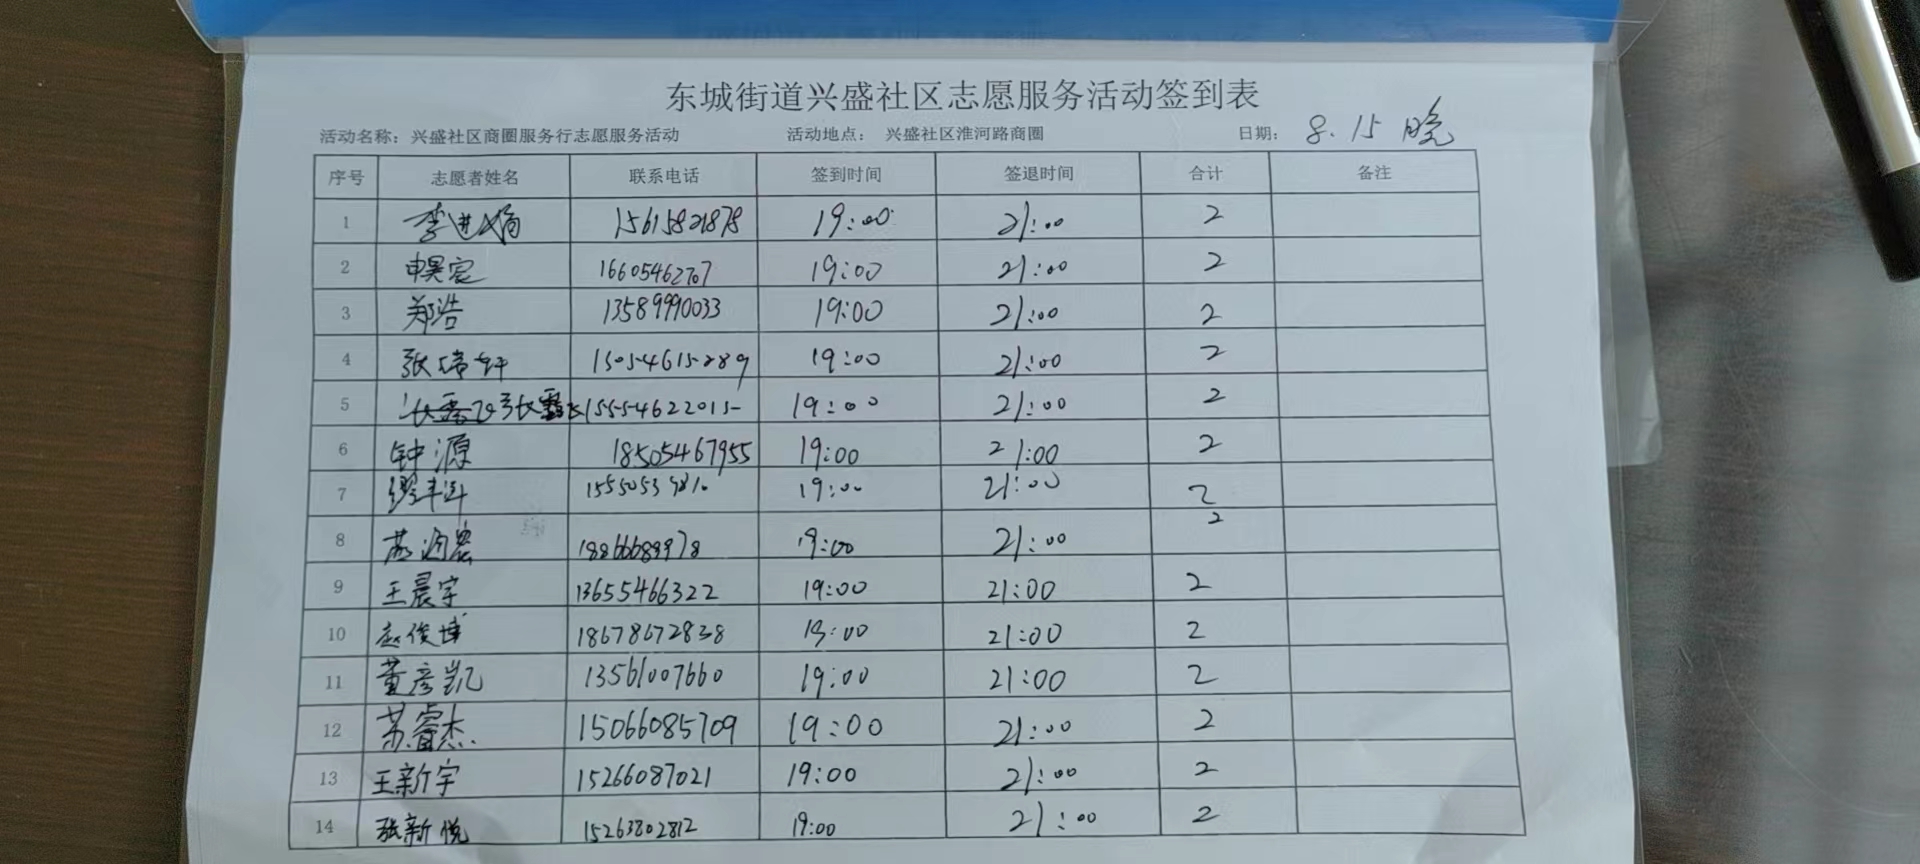 东城街道兴盛社区志愿服务活动签到表
活动名称：兴盛社区商圈服务行志愿服务活动 活动地点： 兴盛社区淮河路商圈 日期： 8.15 晚
序号 志愿者姓名 联系电话 签到时间 签退时间 合计 备注
1 李进娟 15615821878 19:00 21:00 2
2 申昊宸 16605462707 19:00 21:00 2
3 郑浩 13589990033 19:00 21:00 2
4 15054615289 19:00 21:00 2
5 15554622015 19:00 21:00 2
6 钟源 18505467955 19:00 21:00 2
7 19:00 21:00 2
8 19:00 21:00 2
9 王晨宇 13655466322 19:00 21:00 2
10 赵俊博 18678672838 19:00 21:00 2
11 董彦凯 13561007660 19:00 21:00 2
12 苏睿杰 15066085709 19:00 21:00 2
13 王新宇 15266087021 19:00 21:00 2
14 张新悦 15263802812 19:00 21:00 2